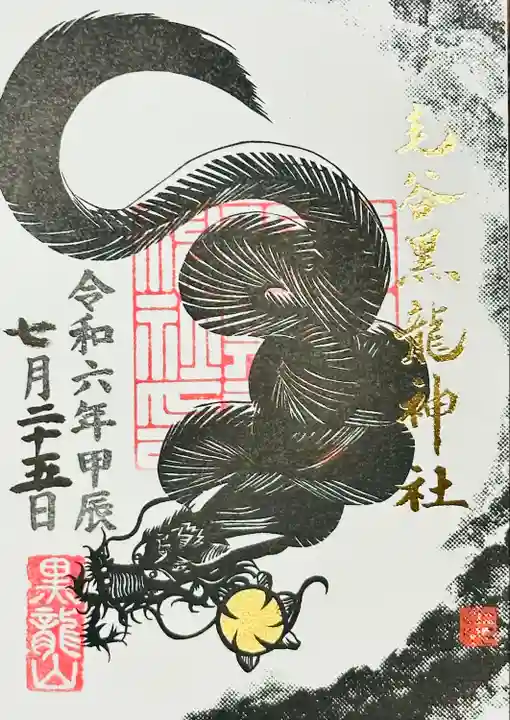 毛谷黒龍神社
令和六年甲辰
七月二十五日
黒龍山